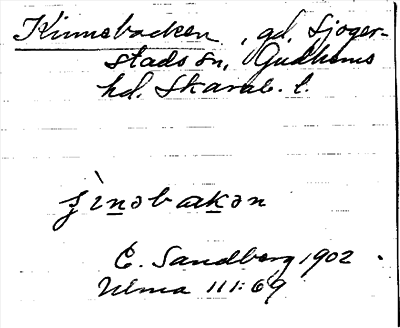 Kinnebacken, gd, Sjoger-
stads sn, Gudhems
hd. Skarab. l.
ʂìnəbakən
E. Sandberg 1902.
Uema 111:69